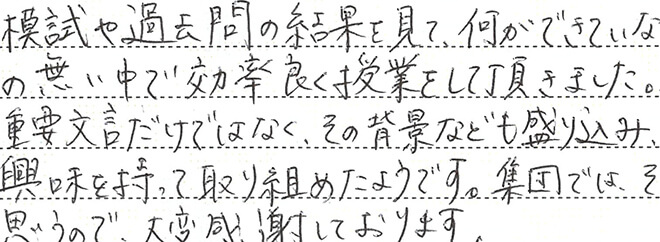 模試や過去問の結果を見て、何ができていな
の無い中で効率良く授業をして頂きました。
重要文言だけではなく、その背景なども盛り込み、
興味を持って取り組めたようです。集団では、そ
思うので、大変感謝しております。